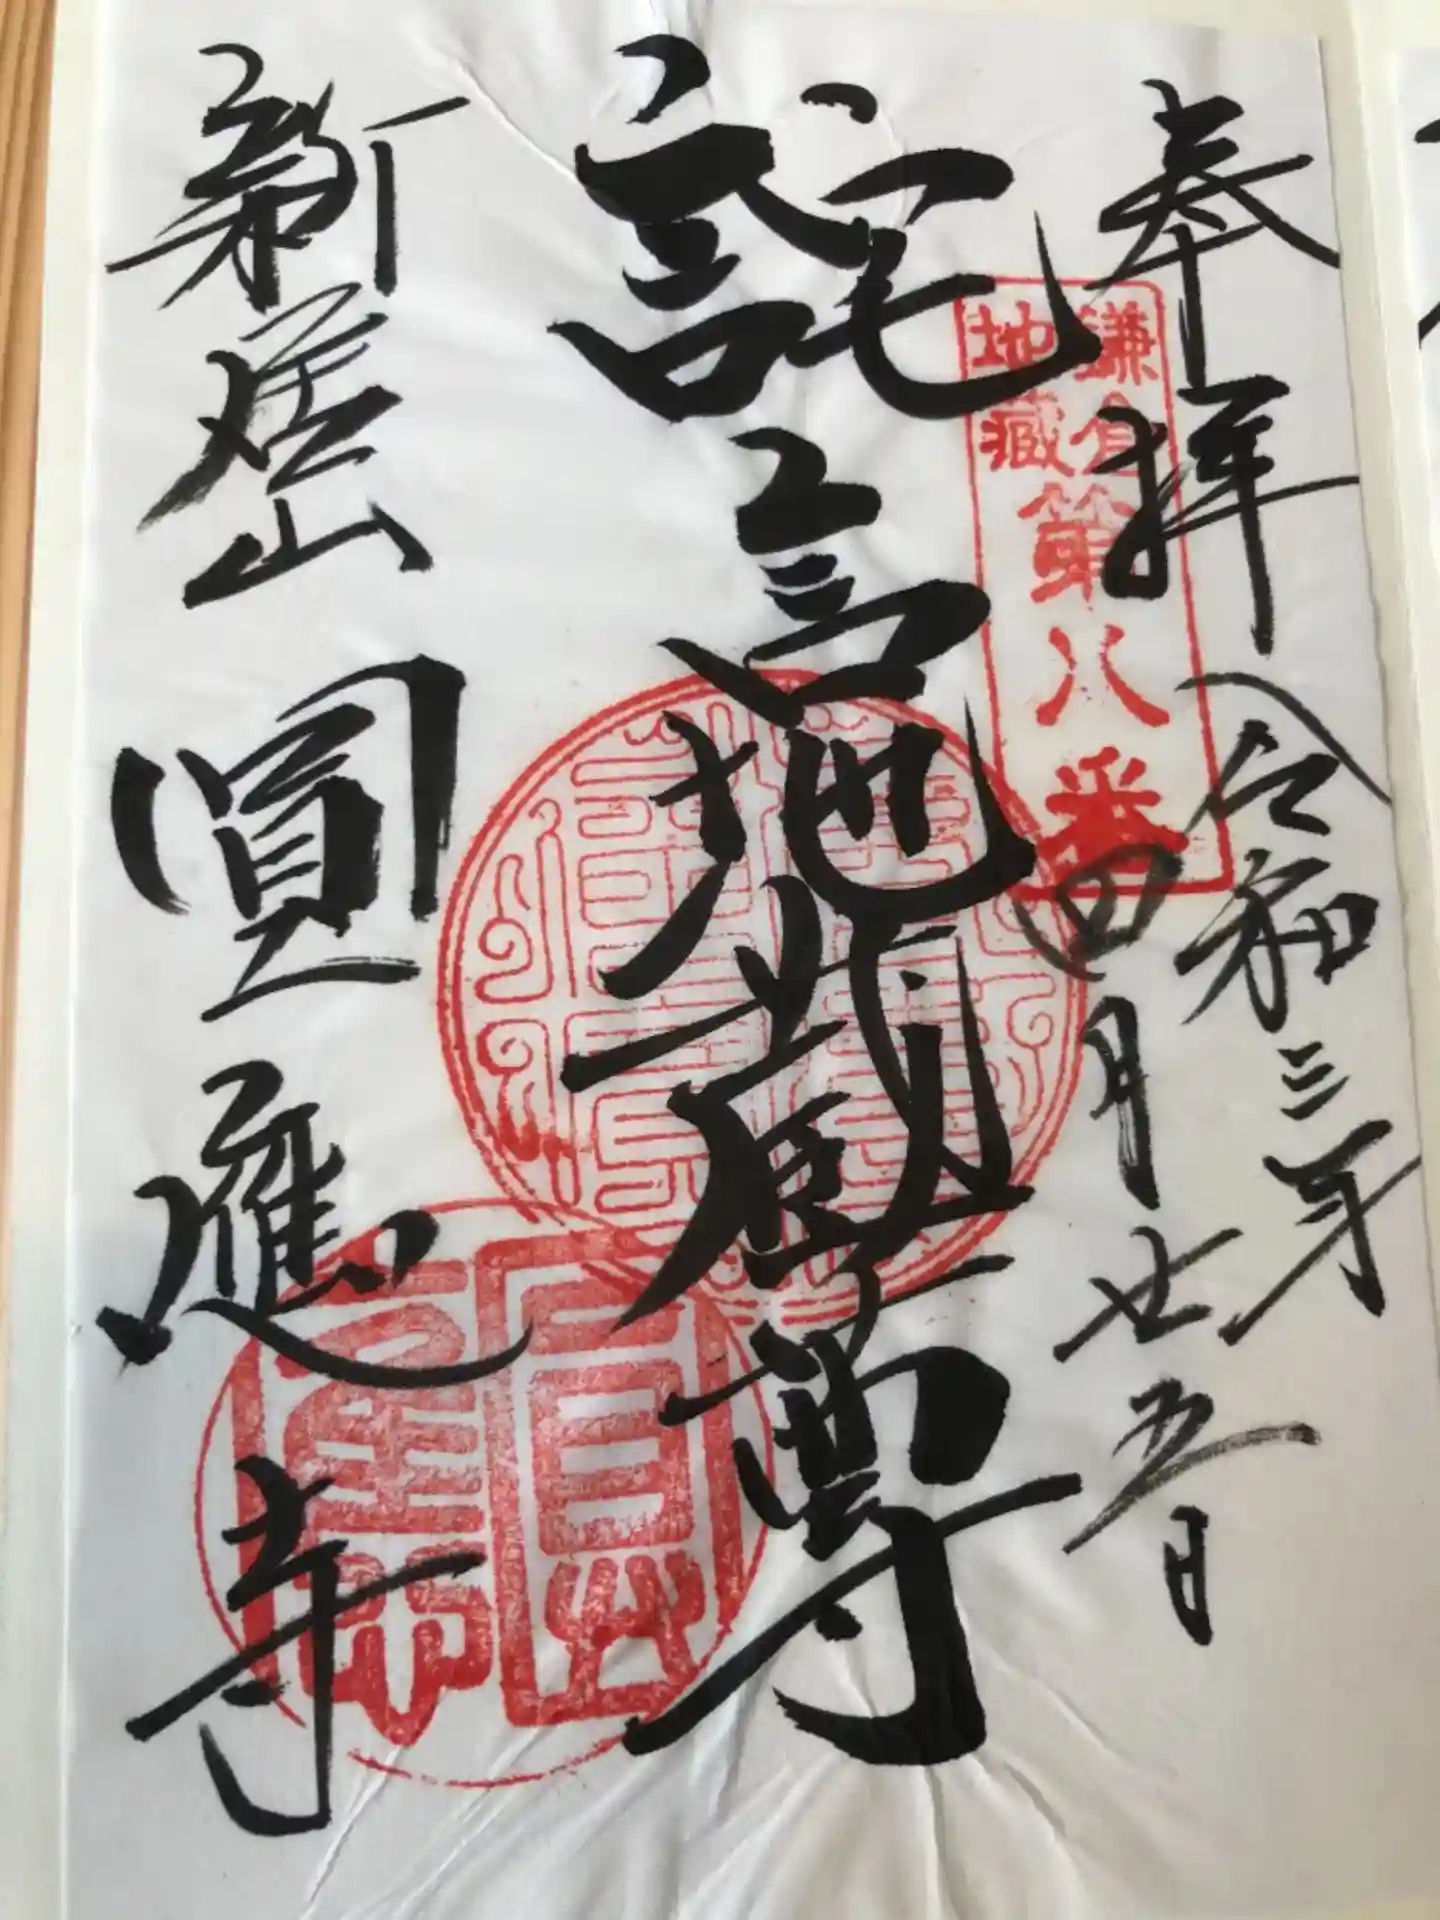 奉拝
令和三年
四月廿五日
鎌倉
地蔵
第八番
詫言地蔵尊
新居山
圓應寺